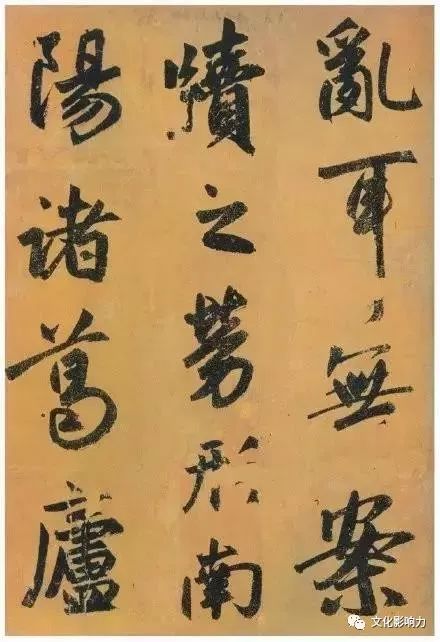 亂耳無案
牘之勞形南
陽諸葛廬
文化影响力